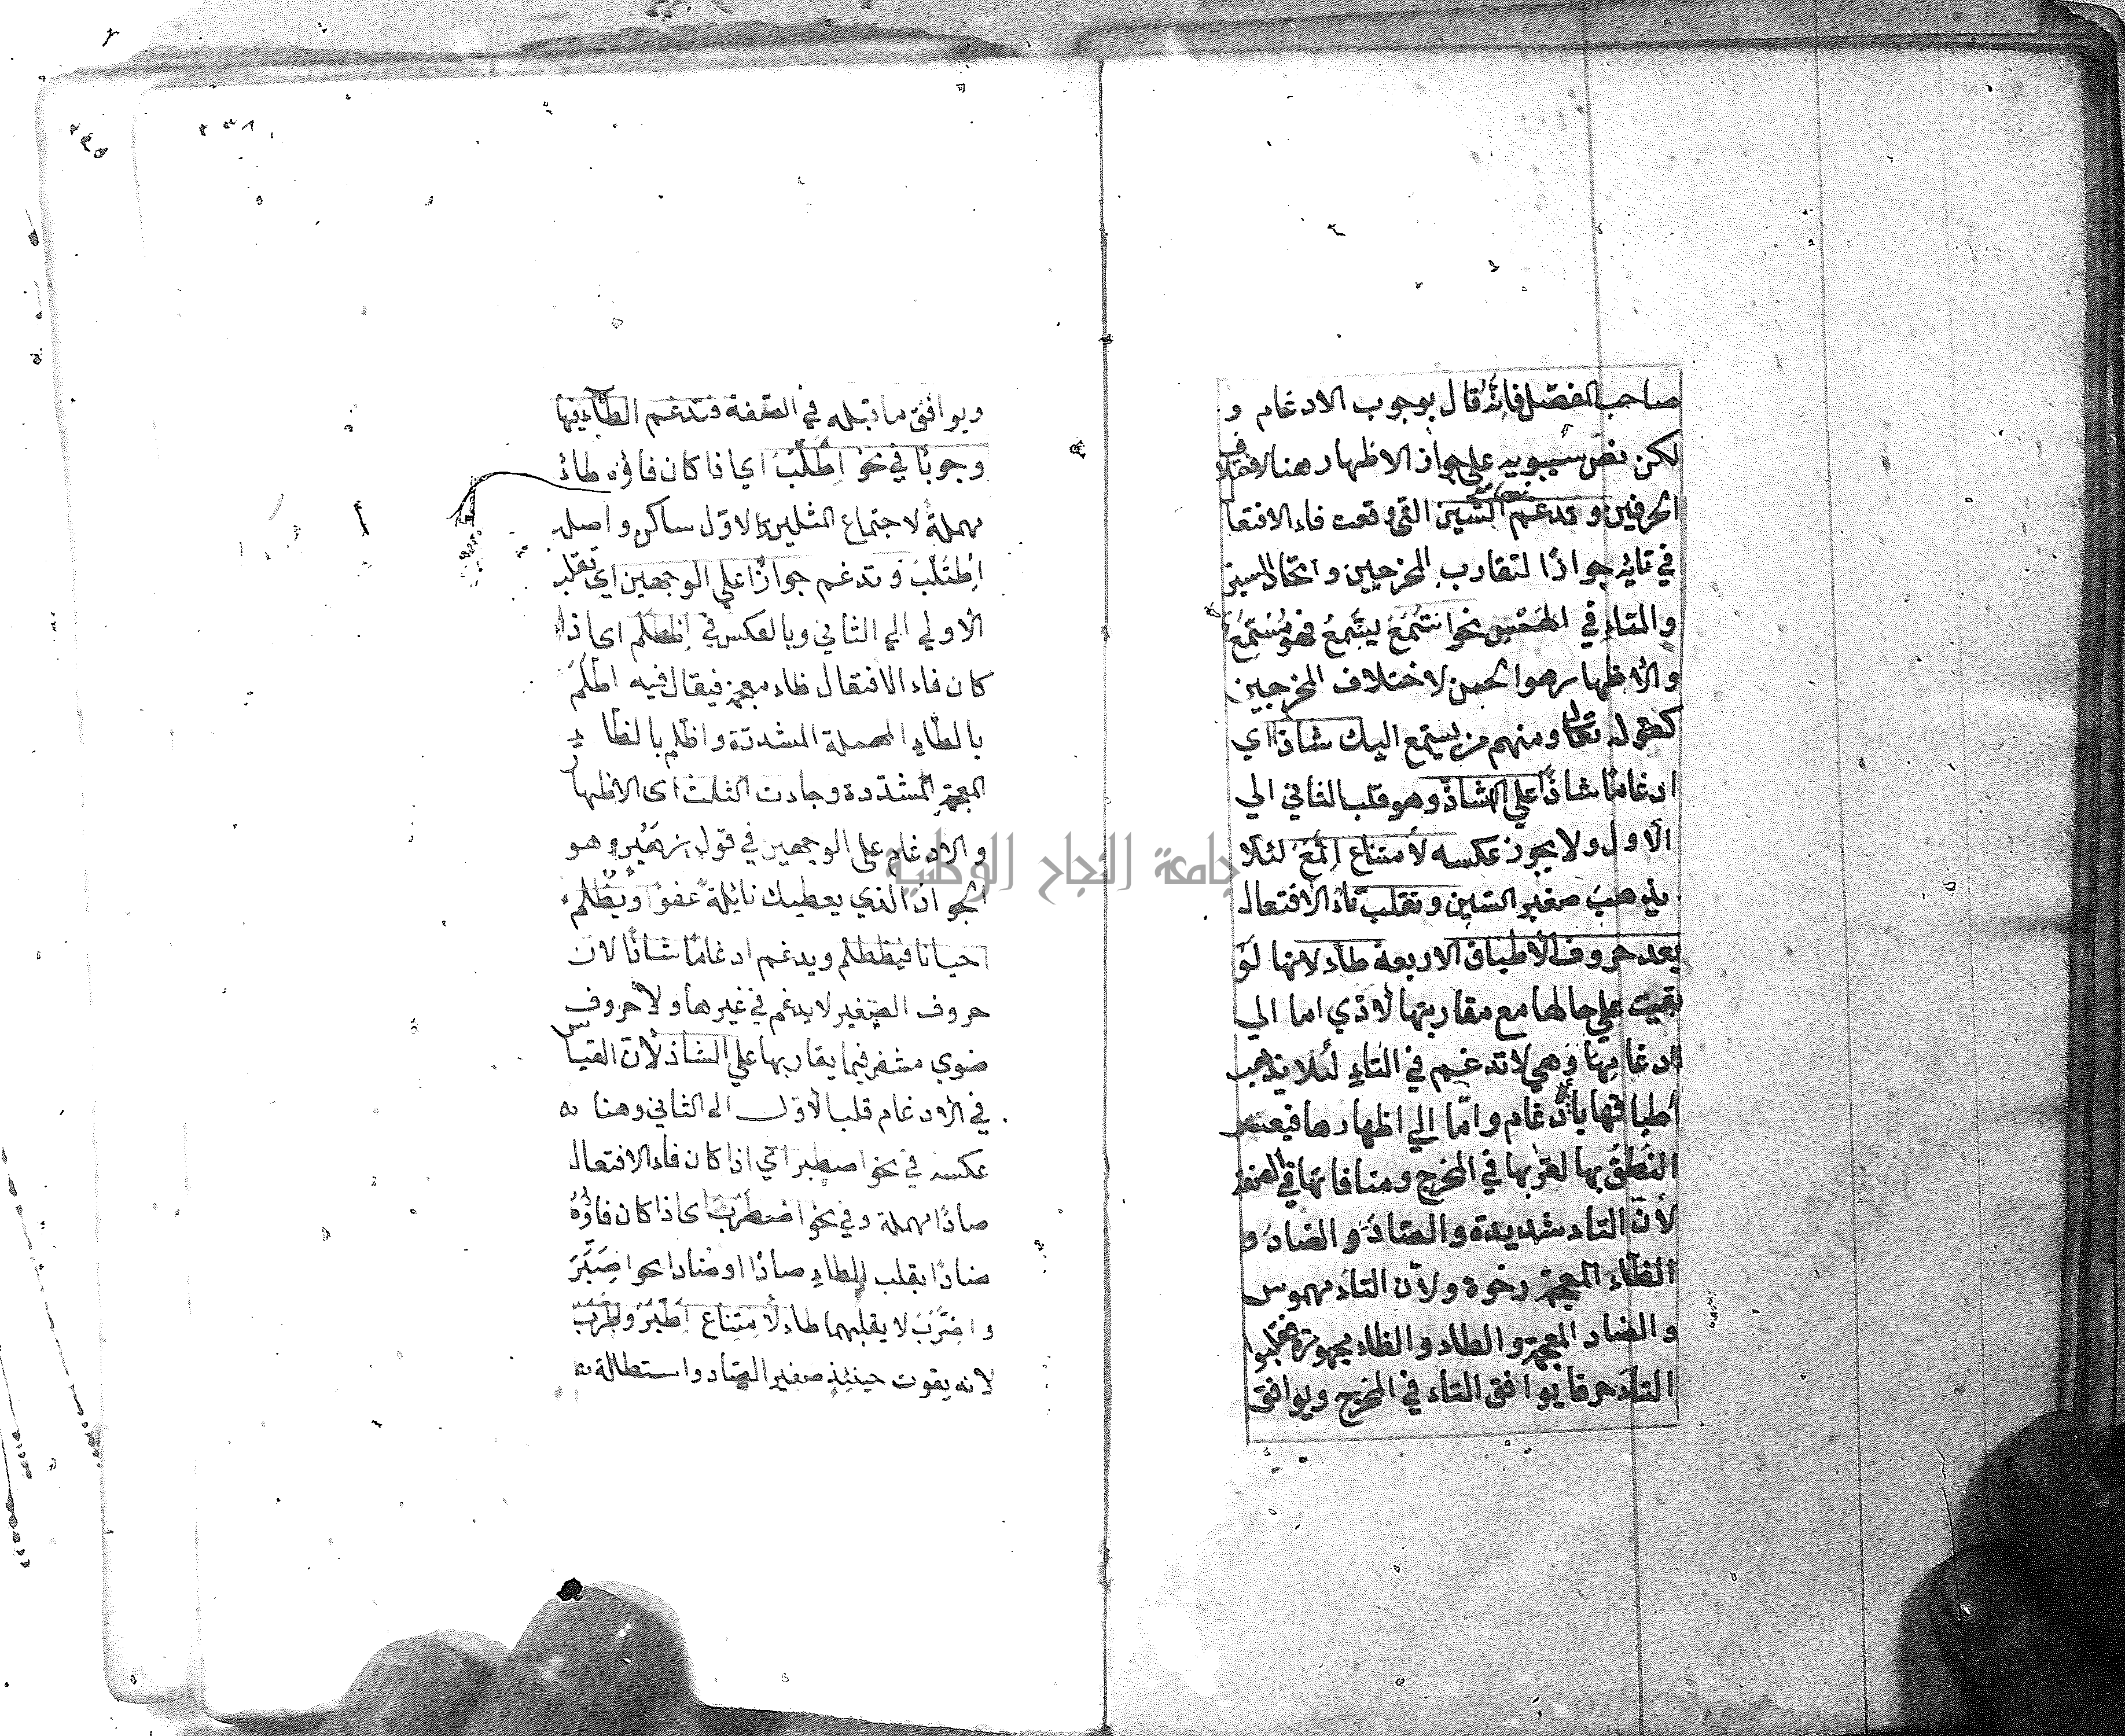 صاحب المفصّل فانّه قال بوجوب الادغام و
لكن نصّ سيبويه على جواز الاظهار هنا لاختلاف
الحرفين وتدغم السّين التى وقعت فاء الافتعا
في تائه جوازًا لتقارب المخرجين واتحاد السين
والتاء في الهمس نحو اسّمع يسّمع فهو مسّمع
والاظهار هو الحسن لاختلاف المخرجين
كقوله تعالى ومنهم من يستمع اليك شاذا اى
ادغامًا شاذًا على الشاذ وهو قلب الثاني الي
الاول ولا يجوز عكسه لامتناع اتّمع لئلا
يذهب صفير السّين وتقلب تاء الافتعال
بعد حروف الاطباق الاربعة طاء لانها لو
بقيت علي حالها مع مقاربتها لادّي اما الي
ادغامها وهي لا تدغم في التاء لئلا يذهب
اطباقها بالادغام وامّا إلي اظهارها فيعسر
النطق بها لقربها في المخرج ومنافاتها في الصفة
لأنّ التاء شديدة والصّاد والضاد و
الظّاء المعجمة رخوة ولأن التاء مهموس
والضاد المعجمة والطاء والظاء مجهورة فقلبوا
التاء حرفا يوافق التاء في المخرج ويوافق
ويوافق ما قبله في الصّفة فتدغم الطّاء فيها
وجوبًا في نحو اطّلب اي اذا كان فاؤه طاءً
مهملة لاجتماع المثلين والاوّل ساكن واصله
اطتلب وتدغم جوازًا علي الوجهين اي تقلب
الاولي الي الثاني وبالعكس في اظطلم اى اذا
كان فاء الافتعال ظاء معجمة فيقال فيه اطّلم
بالطّاء المهملة المشددة واظّلم بالظّاء
المعجمة المشدّدة وجاءت الثلث اى الاظهار
والادغام على الوجهين في قول زهير وهو
الجواد الذي يعطيك نائلة عفوا ويظّلم
احيانا فيظطلم ويدغم ادغامًا شاذًا لان
حروف الصّفير لا يدغم في غيرها ولا حروف
ضوي مشفر فيما يقاربها علي الشاذ لأن القياس
في الادغام قلب الاوّل الى الثاني وهنا
عكسه في نحو اصطبر اي اذا كان فاء الافتعال
صادًا مهملة وفي نحو اضطرب اى اذا كان فاؤه
ضادًا بقلب الطاء صادًا او ضادا نحو اصّبر
واضّرب لا يقلبهما طاء لامتناع اطّبر واطّرب
لانه يفوت حينئذ صفير الصّاد واستطالة
جامعة النجاح الوطنية